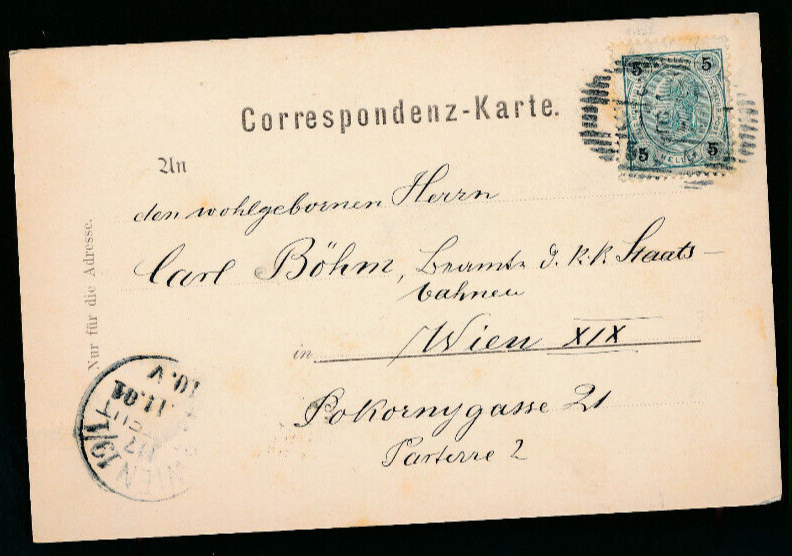 Correspondenz-Karte.
An
den wohlgebornen Herrn
Carl Böhm, Beamte d. k. k. Staats-
bahnen
in Wien XIX
Pokornygasse 21
Parterre 2
Nur für die Adresse.
5 5
HELLER
5 5
WIEN 19/1
10.V